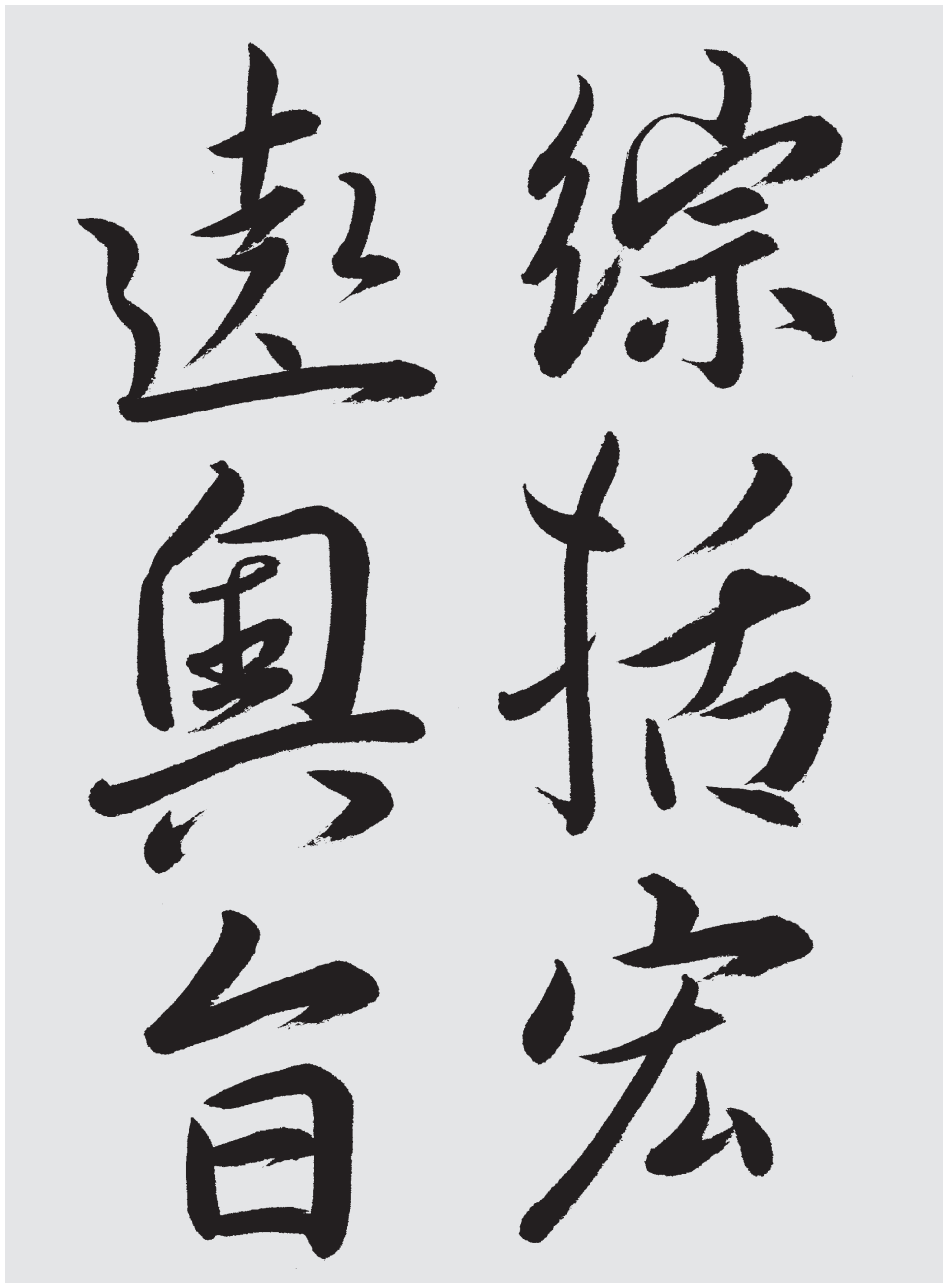 綜括宏
遠奧旨